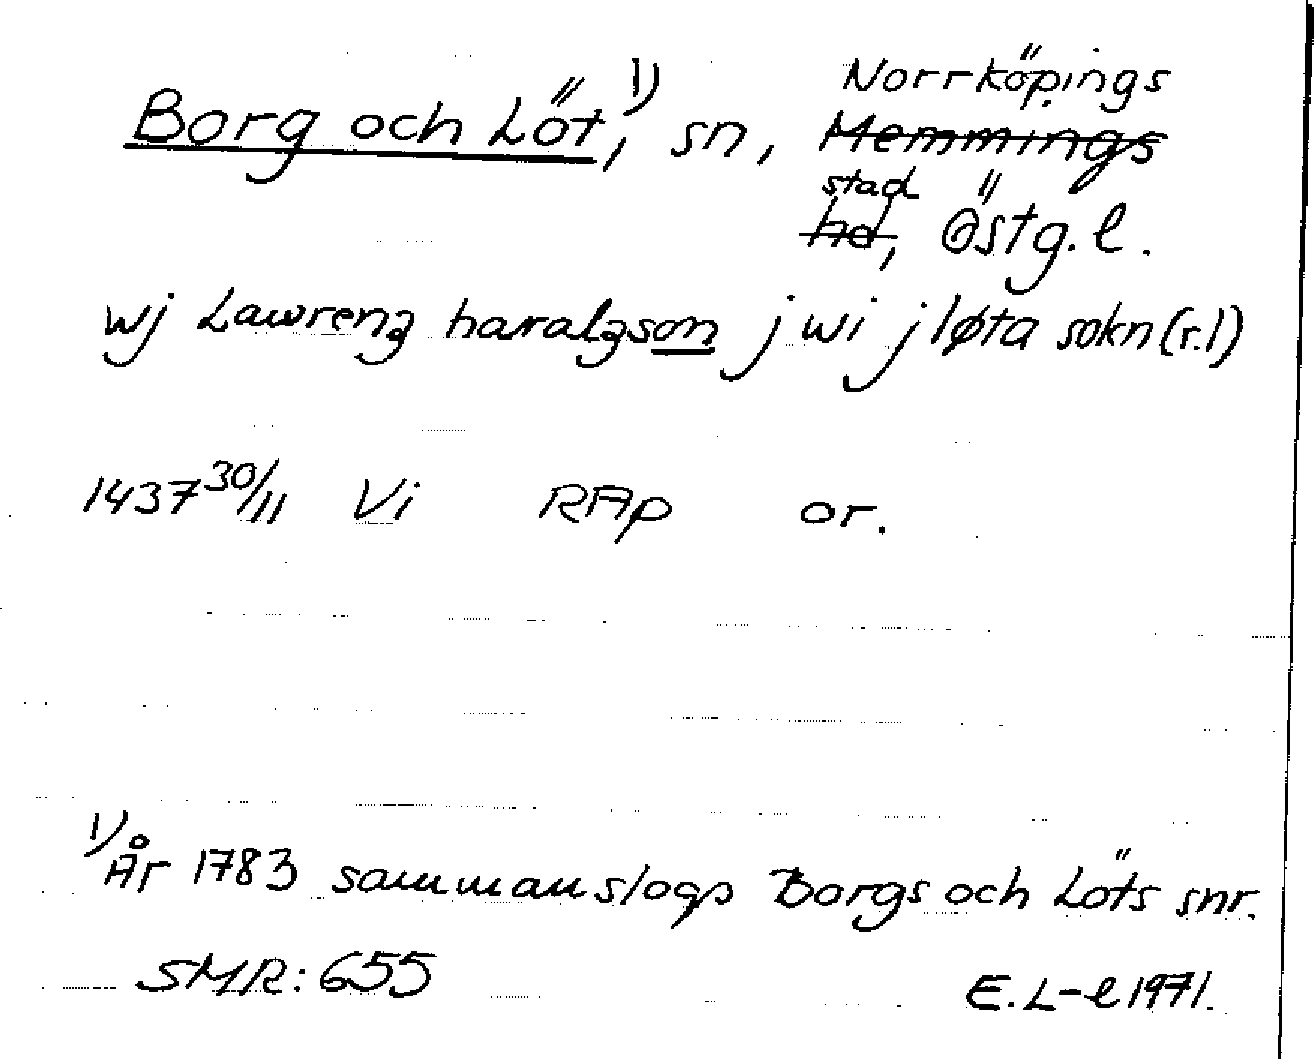 Borg och Löt,¹⁾ sn, Norrköpings
Memmings
stad
hd, Östg. l.
wj Lawrenz haralzson j wi j løta sokn (r.1)
1437 30/11 Vi RAp or.
¹⁾År 1783 sammanslogs Borgs och Löts snr.
SMR: 655
E. L-l 1971.